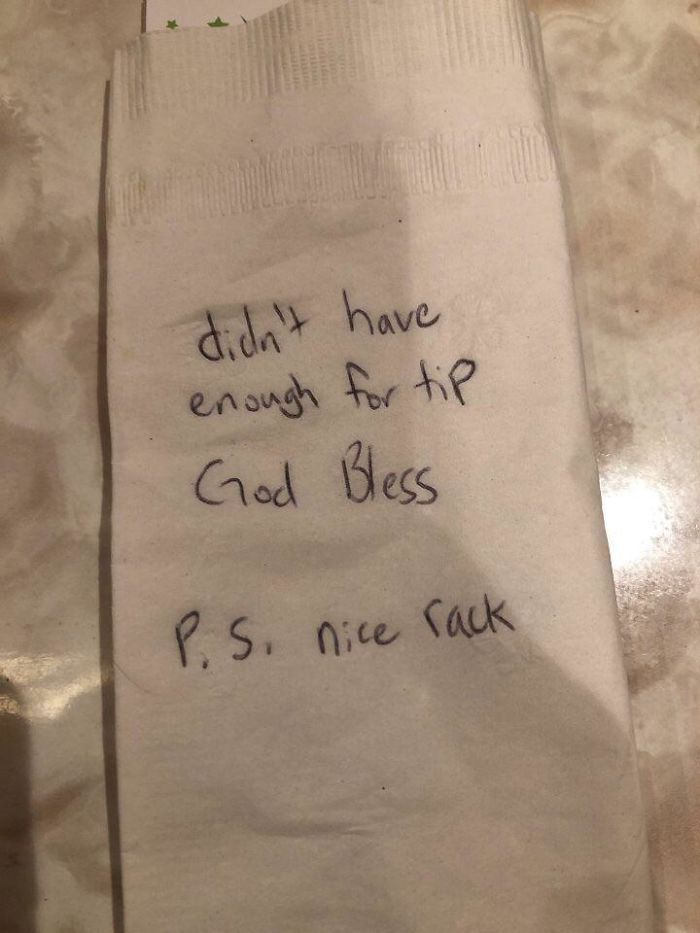 didn't have
enough for tip
God Bless
P.S. nice rack